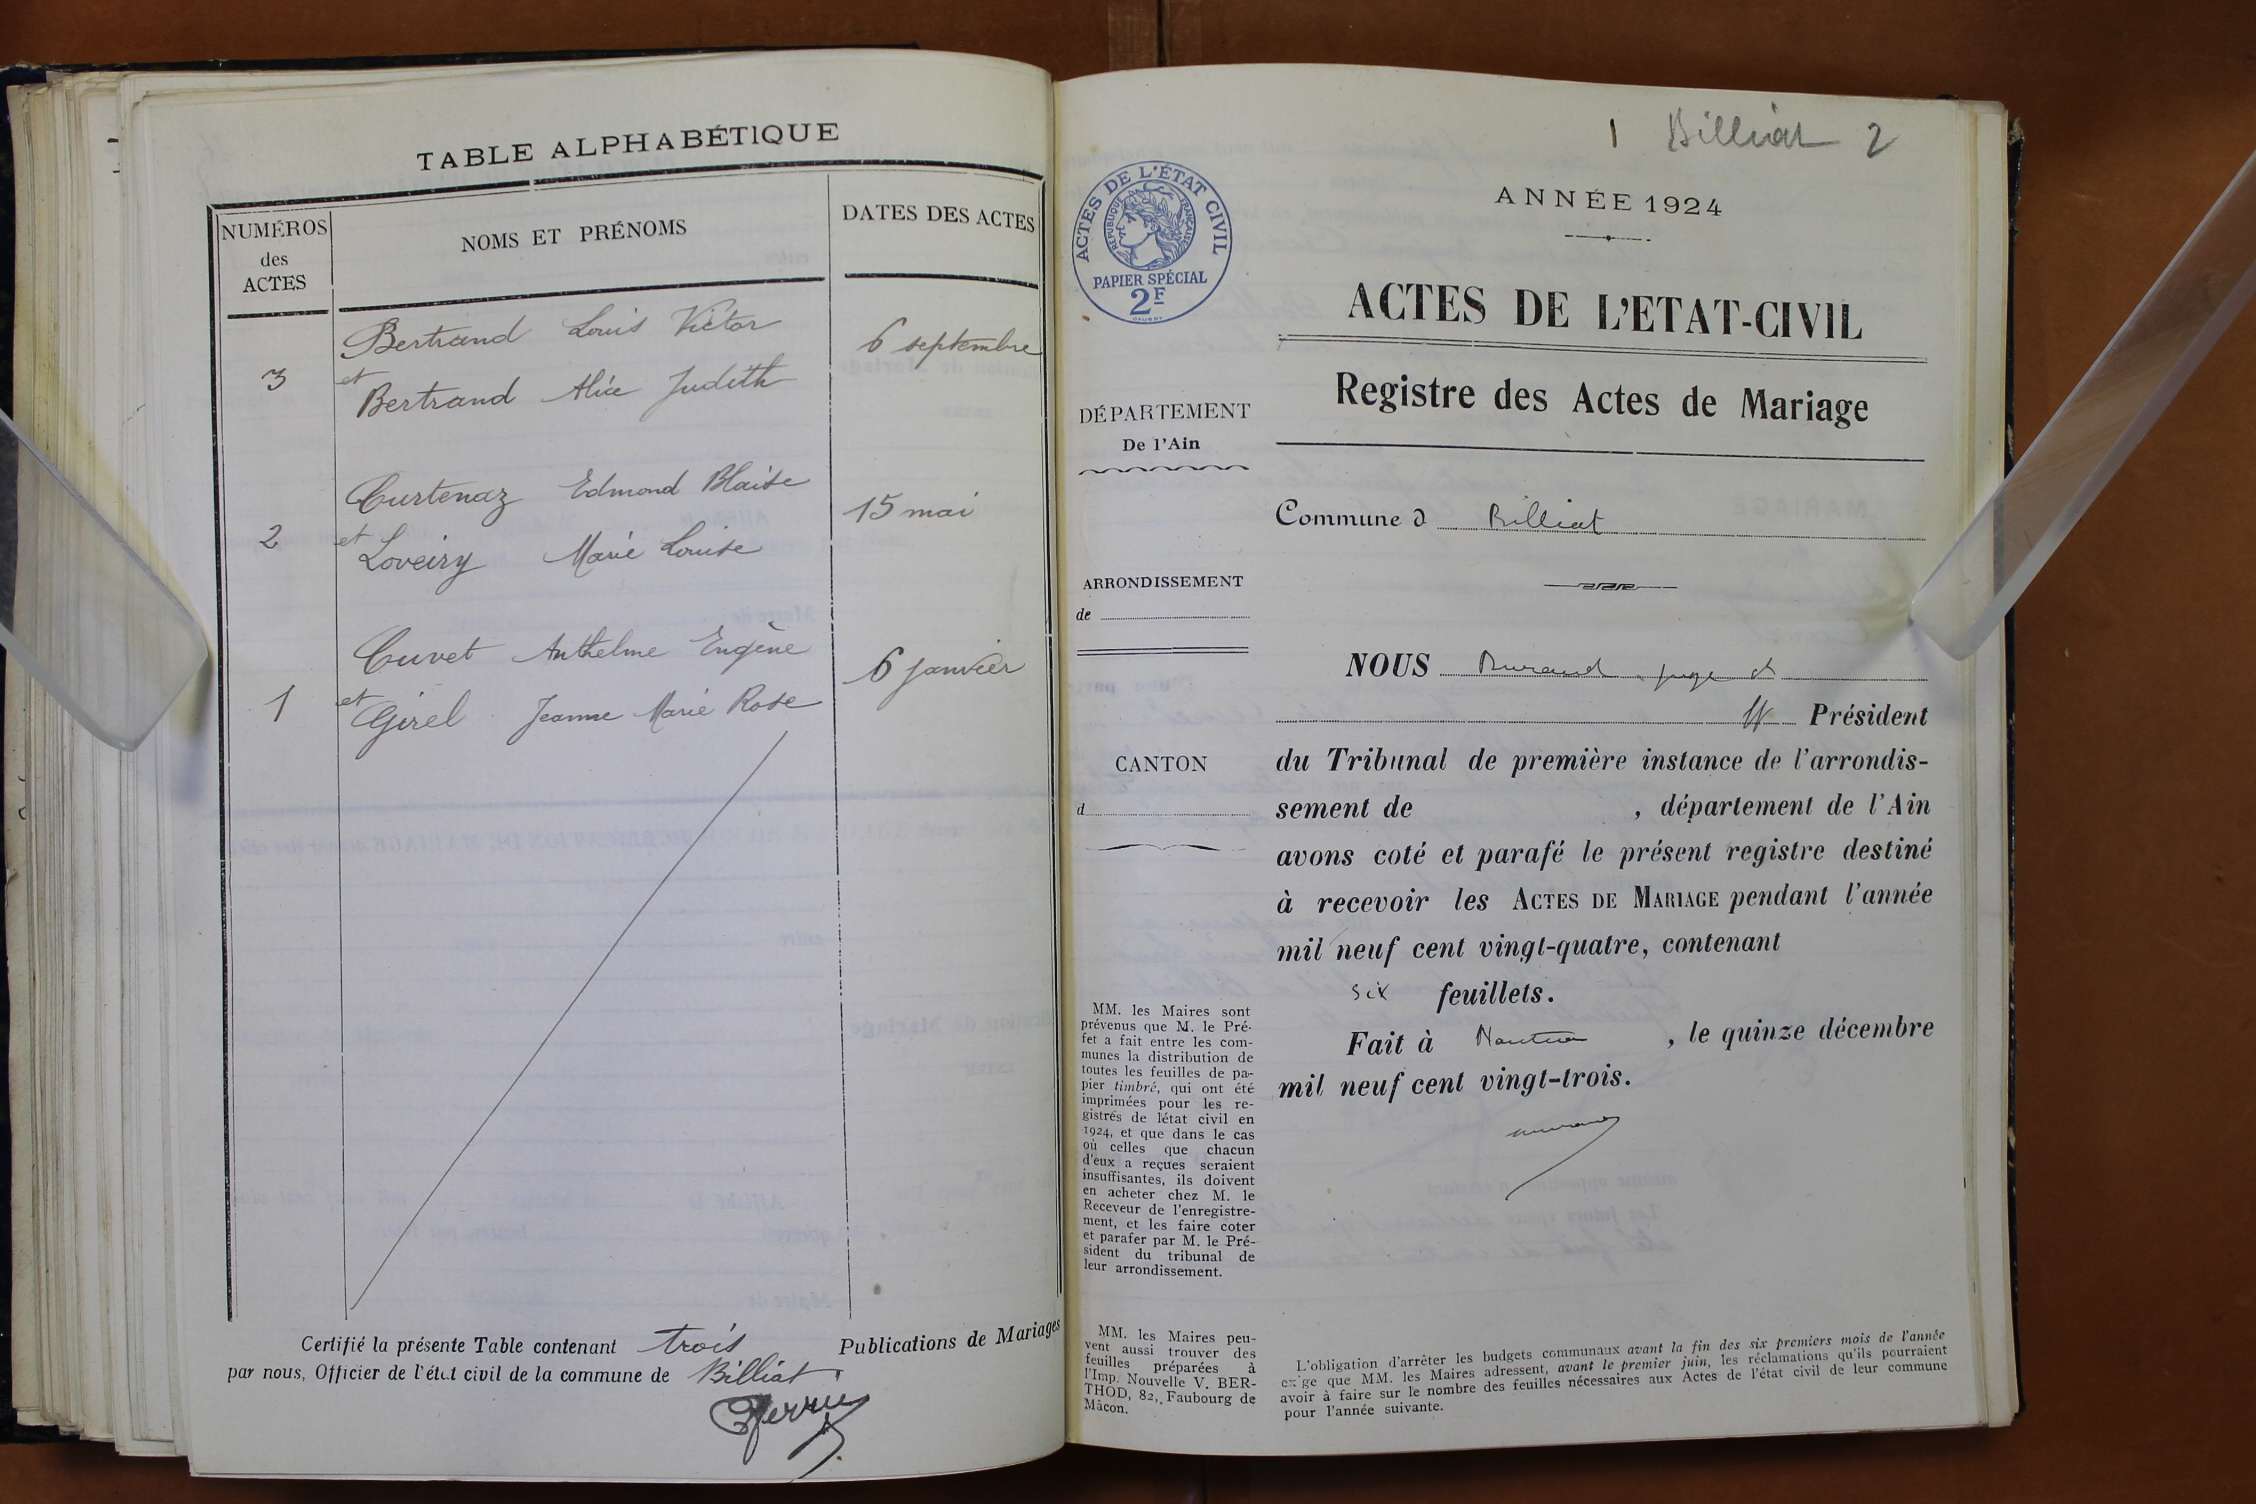 TABLE ALPHABÉTIQUE
NUMÉROS
des
ACTES
NOMS ET PRÉNOMS
DATES DES ACTES
Bertrand Louis Victor
6 septembre
3
et
Bertrand Alice Judith
Curtenaz Edmond Blaise
15 mai
2
et
Loveiry Marie Louise
Cuvet Anthelme Eugène
6 janvier
1
et
Girel Jeanne Marie Rose
Certifié la présente Table contenant trois Publications de Mariages
par nous, Officier de l'état civil de la commune de Billiat
1 Billiat 2
ACTES DE L'ÉTAT CIVIL
RÉPUBLIQUE FRANÇAISE
PAPIER SPÉCIAL
2F
ANNÉE 1924
ACTES DE L'ETAT-CIVIL
Registre des Actes de Mariage
DÉPARTEMENT
De l'Ain
Commune d Billiat
ARRONDISSEMENT
de
NOUS Durand juge
Président
CANTON
d
du Tribunal de première instance de l'arrondis-
sement de , département de l'Ain
avons coté et parafé le présent registre destiné
à recevoir les ACTES DE MARIAGE pendant l'année
mil neuf cent vingt-quatre, contenant
six feuillets.
Fait à Nantua , le quinze décembre
mil neuf cent vingt-trois.
MM. les Maires sont
prévenus que M. le Pré-
fet a fait entre les com-
munes la distribution de
toutes les feuilles de pa-
pier timbré, qui ont été
imprimées pour les re-
gistrés de l'état civil en
1924, et que dans le cas
où celles que chacun
d'eux a reçues seraient
insuffisantes, ils doivent
en acheter chez M. le
Receveur de l'enregistre-
ment, et les faire coter
et parafer par M. le Pré-
sident du tribunal de
leur arrondissement.
MM. les Maires peu-
vent aussi trouver des
feuilles préparées à
l'Imp. Nouvelle V. BER-
THOD, 82, Faubourg de
Mâcon.
L'obligation d'arrêter les budgets communaux avant la fin des six premiers mois de l'année
exige que MM. les Maires adressent, avant le premier juin, les réclamations qu'ils pourraient
avoir à faire sur le nombre des feuilles nécessaires aux Actes de l'état civil de leur commune
pour l'année suivante.